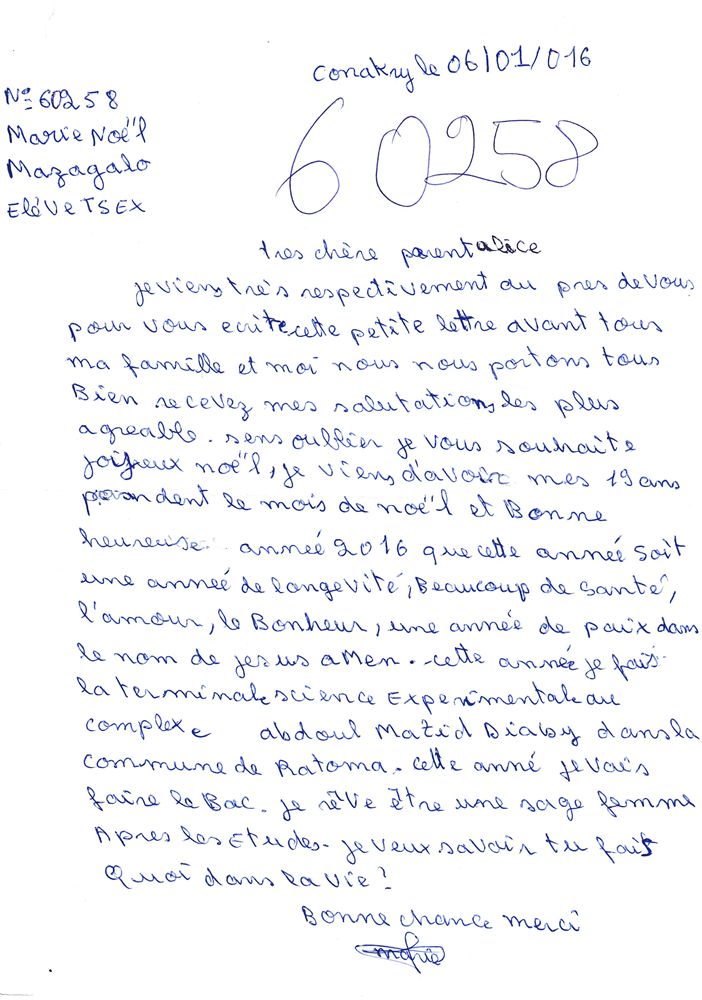 Conakry le 06/01/016
N° 60258
60258
Marie Noë'l
Mazagalo
ElèVe TSEX
tres chère parent alice
je viens très respectivement au pres de vous
pour vous ecrite cette petite lettre avant tous
ma famille et moi nous nous portons tous
Bien recevez mes salutations les plus
agreable. sens oublier je vous souhaite
joijeux noë'l, je viens d'avoir mes 19 ans
pendent le mois de noë'l et Bonne
heureuse année 2016 que cette année soit
une année de longevité, Beaucoup de santé,
l'amour, le Bonheur, une année de paix dans
le nom de jesus aMen. cette année je fais
la terminale science Experimentale au
complexe abdoul Mazid Diaby dans la
commune de Ratoma. cette anné je vais
faire le Bac. je rêve être une sage femme
Apres les Etudes. je veux savoir tu fais
Quoi dans la vie?
Bonne chance merci